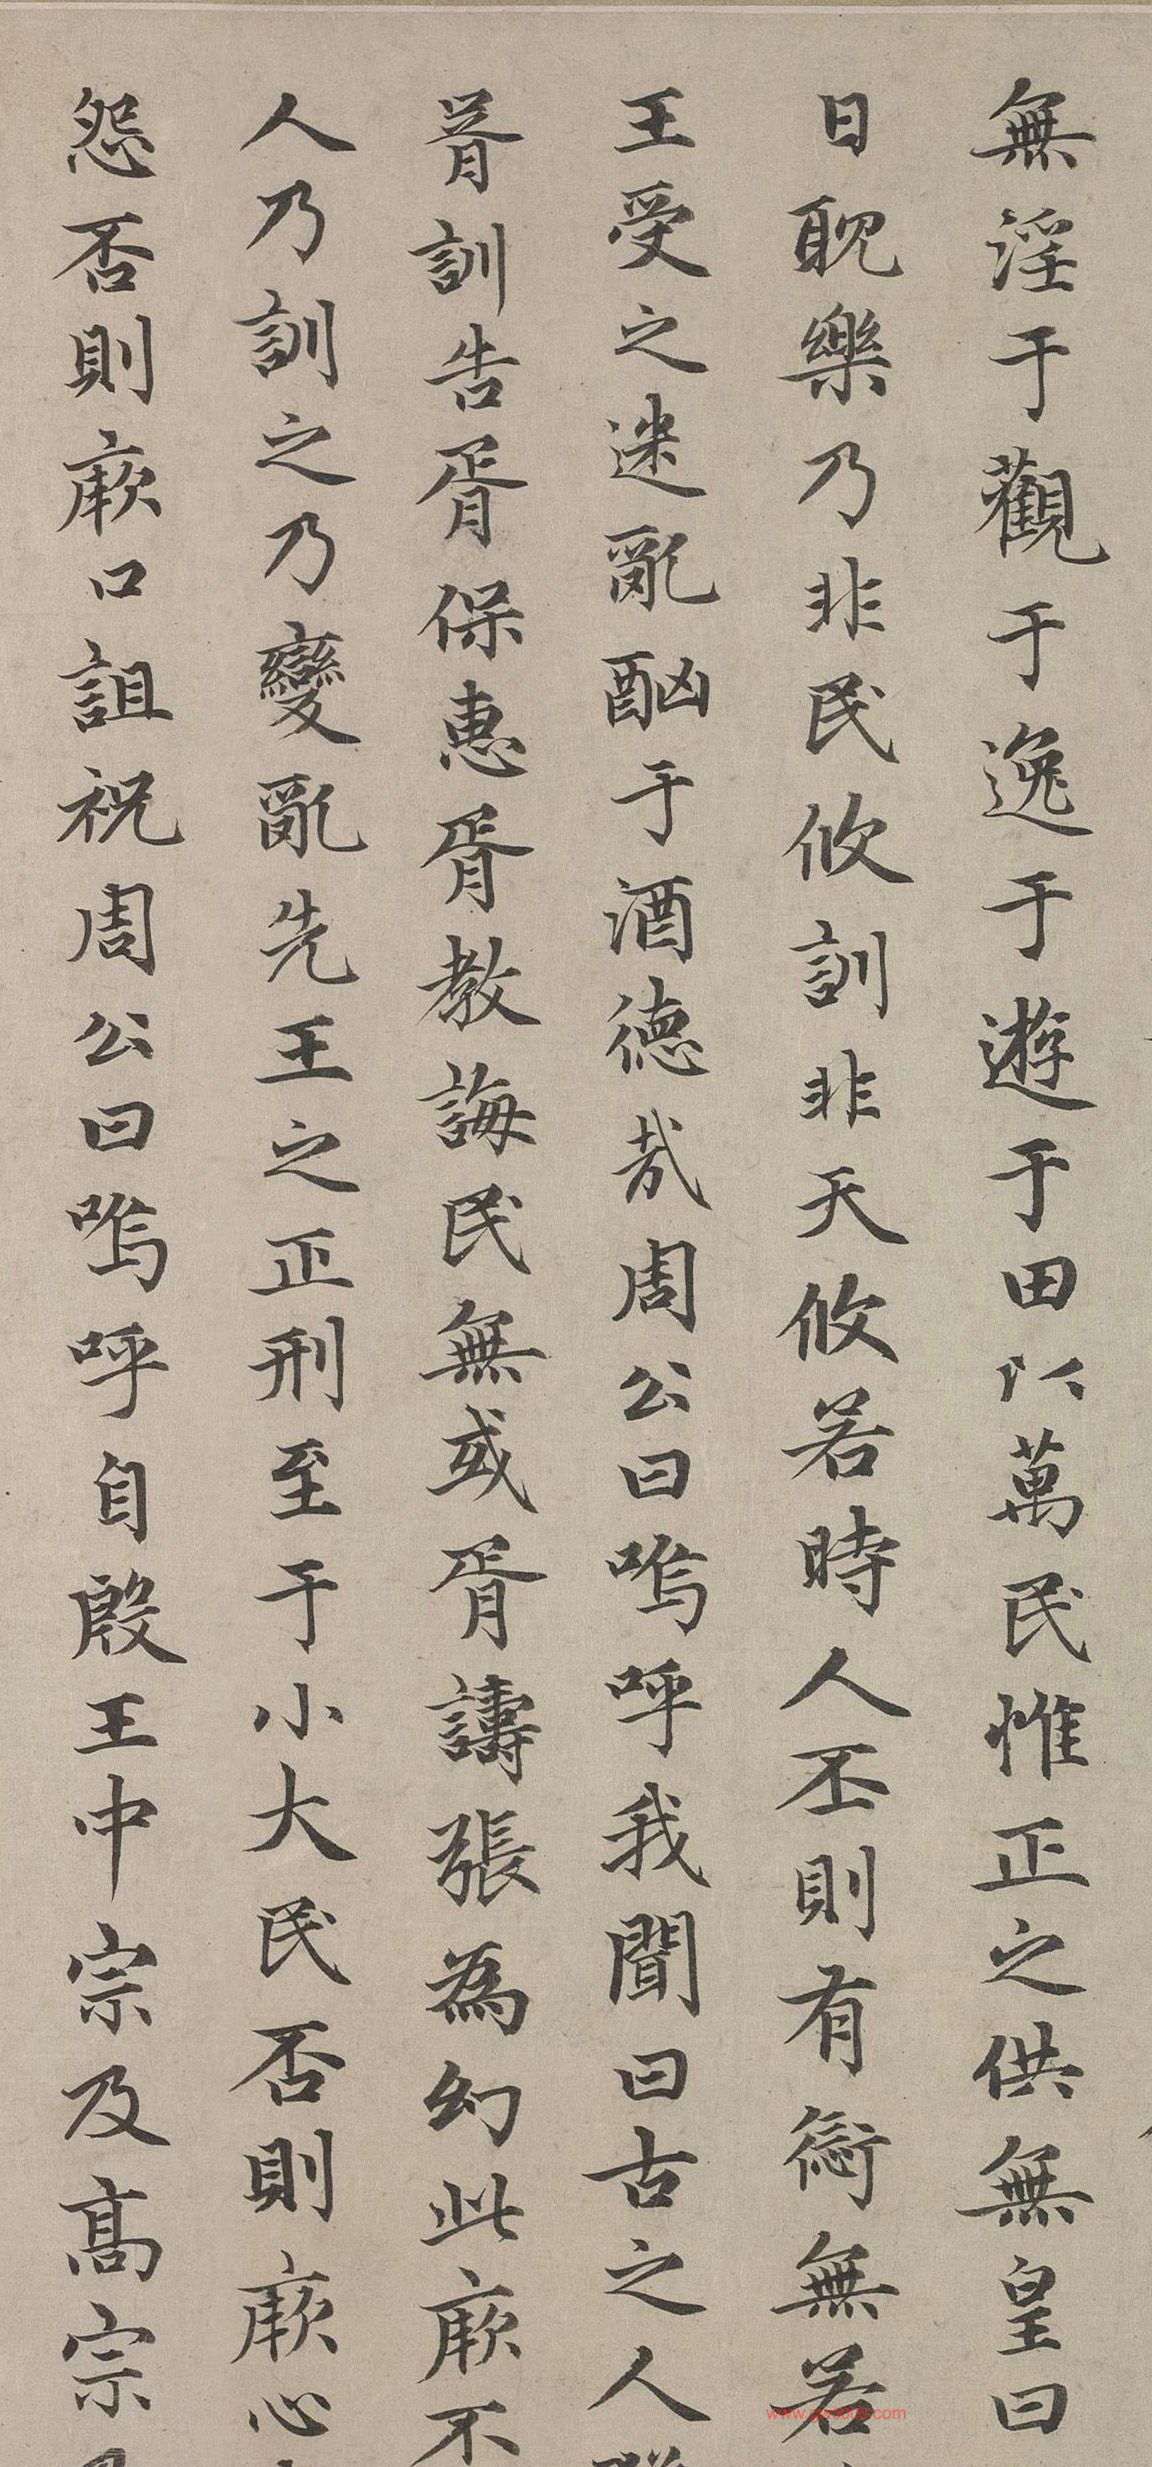 無淫于觀于逸于遊于田以萬民惟正之供無皇曰
日耽樂乃非民攸訓非天攸若時人丕則有愆無若
王受之迷亂酗于酒德哉周公曰嗚呼我聞曰古之人
胥訓告胥保惠胥教誨民無或胥譸張為幻此厥不
人乃訓之乃變亂先王之正刑至于小大民否則厥心
怨否則厥口詛祝周公曰嗚呼自殷王中宗及高宗